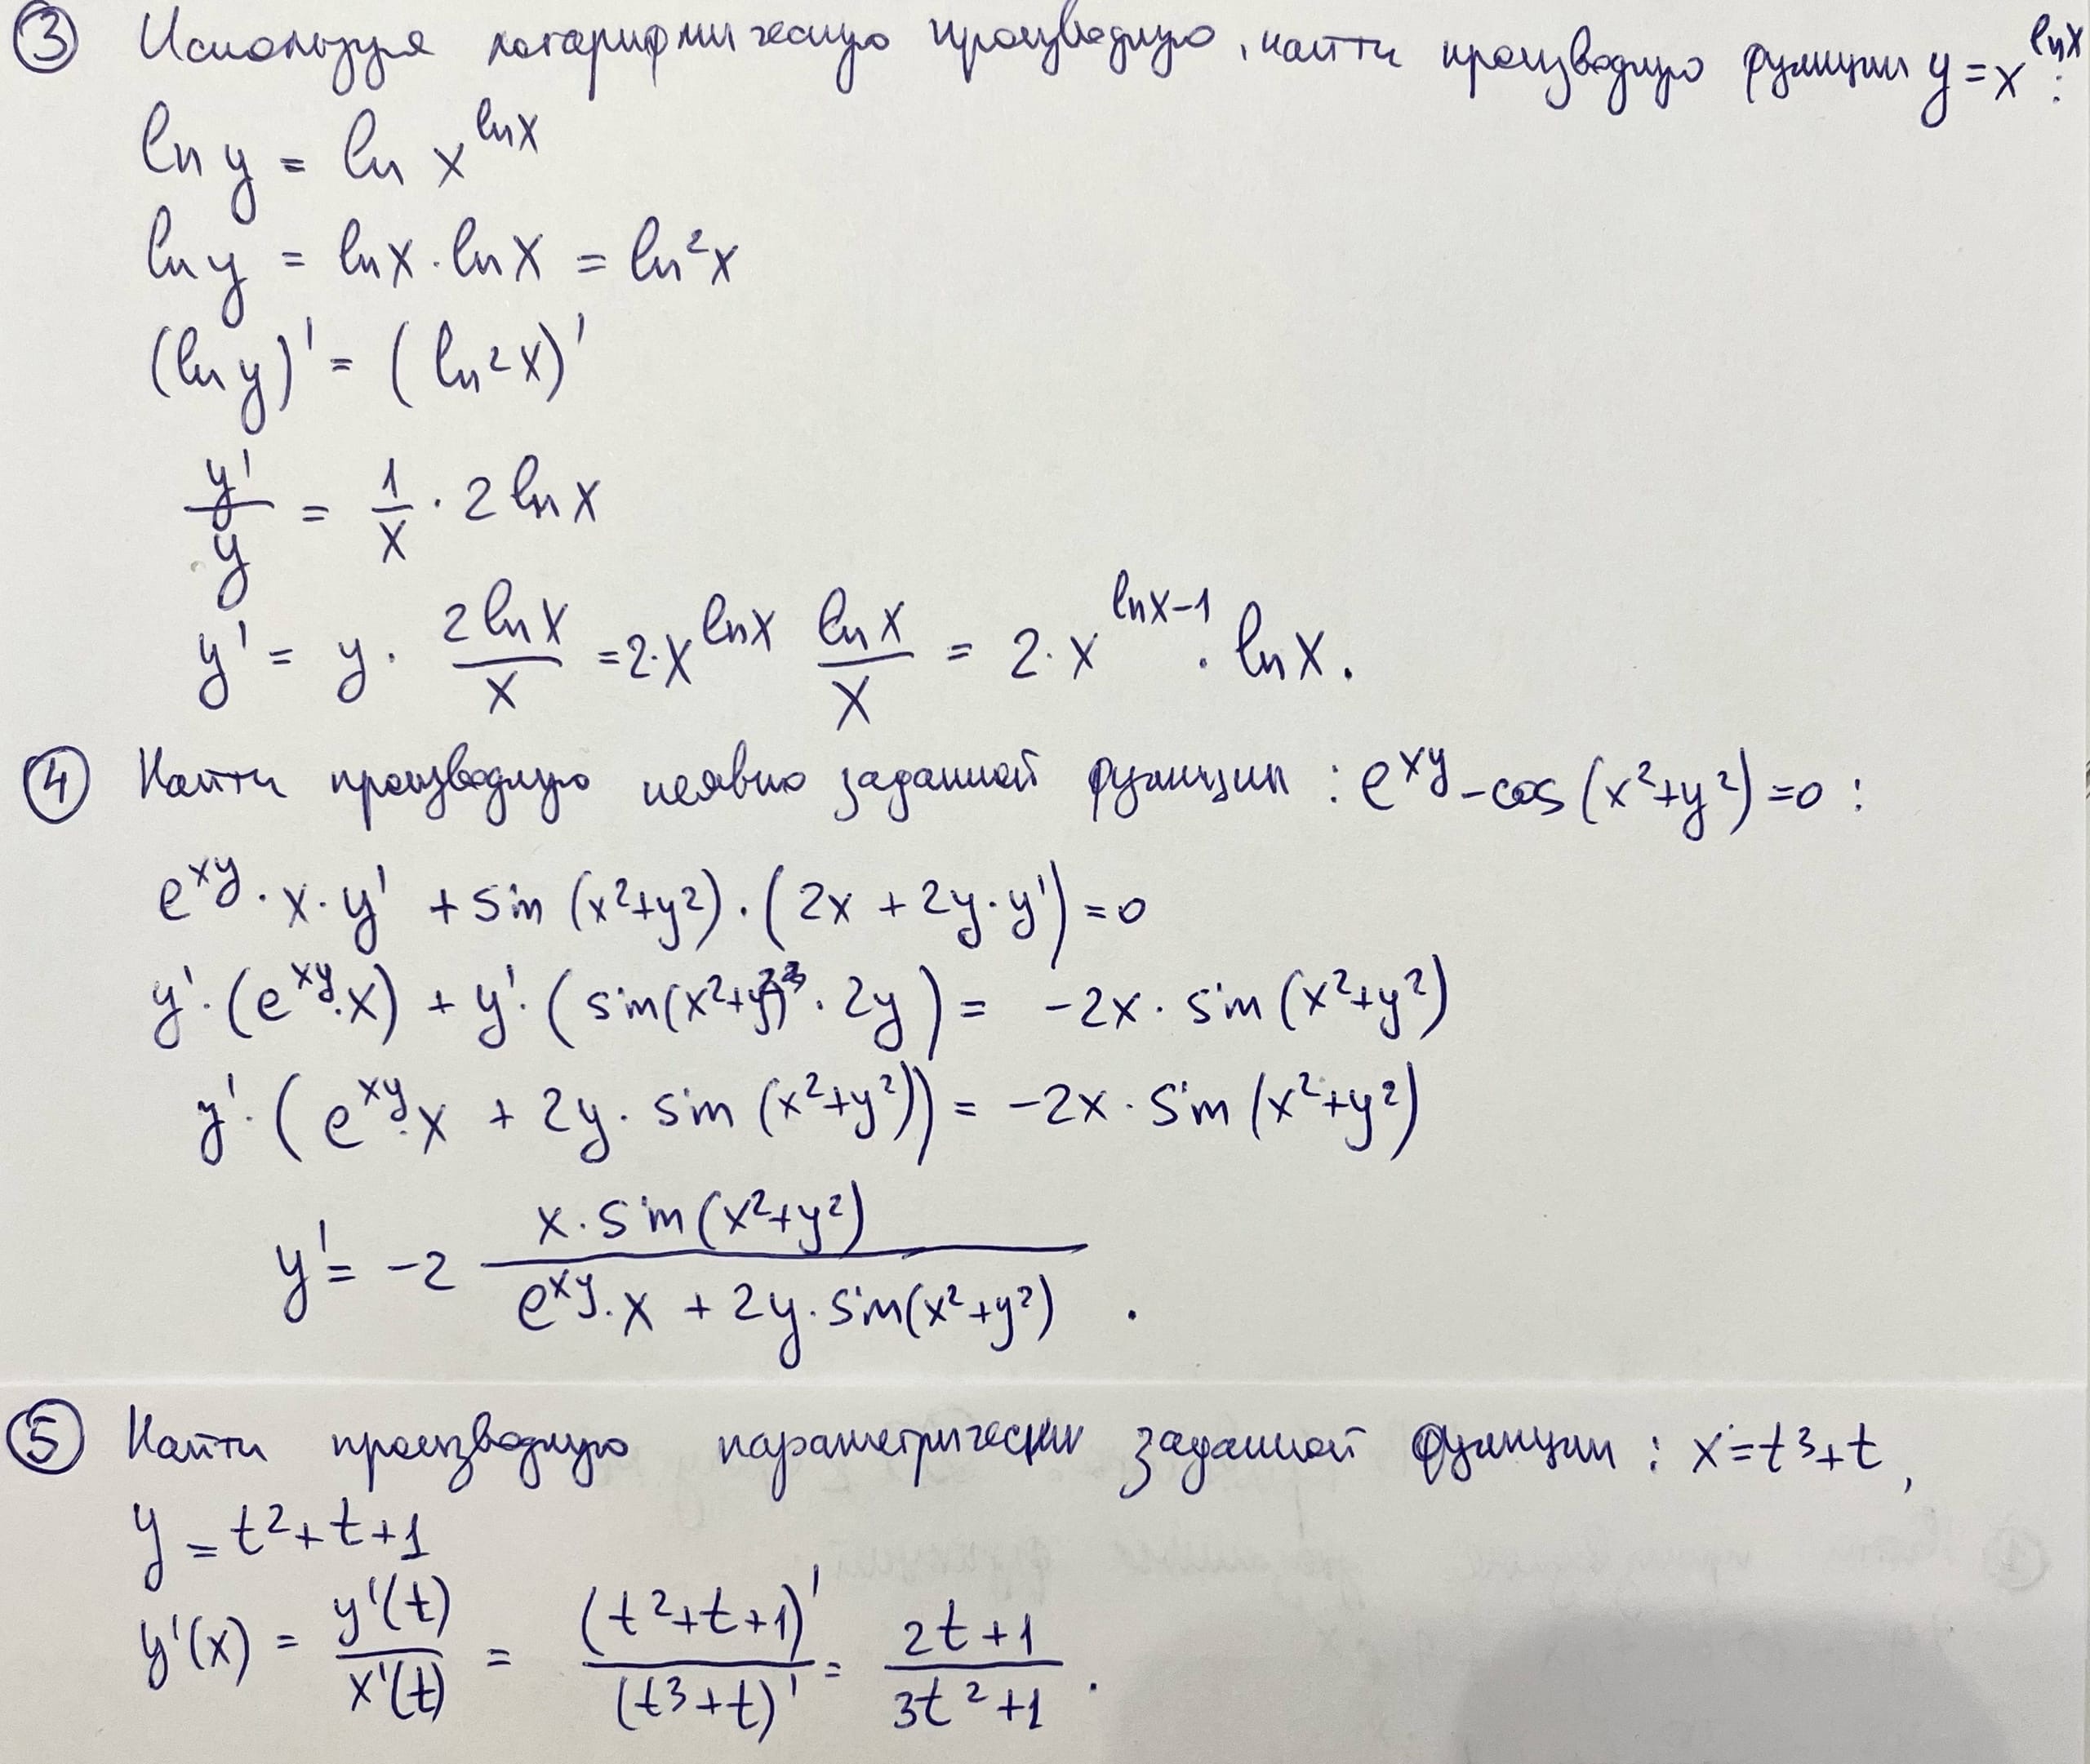 ③ Используя логарифмическую производную, найти производную функции y = x^{ln x}:
ln y = ln x^{ln x}
ln y = ln x · ln x = ln²x
(ln y)' = (ln²x)'
y'/y = 1/x · 2 ln x
y' = y · (2 ln x)/x = 2·x^{ln x} (ln x)/x = 2·x^{ln x-1} · ln x.
④ Найти производную неявно заданной функции : e^{xy} - cos (x²+y²) = 0 :
e^{xy} · x · y' + sin (x²+y²) · (2x + 2y · y') = 0
y' · (e^{xy} · x) + y' · (sin(x²+y²) · 2y) = -2x · sin (x²+y²)
y' · (e^{xy} · x + 2y · sin (x²+y²)) = -2x · sin (x²+y²)
y' = -2 (x · sin(x²+y²))/(e^{xy} · x + 2y · sin(x²+y²)) .
⑤ Найти производную параметрически заданной функции : x = t³+t,
y = t²+t+1
y'(x) = y'(t)/x'(t) = (t²+t+1)'/(t³+t)' = (2t+1)/(3t²+1) .